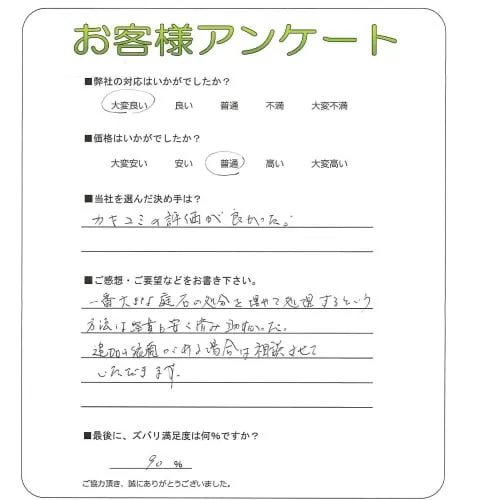 お客様アンケート
■弊社の対応はいかがでしたか？
大変良い 良い 普通 不満 大変不満
■価格はいかがでしたか？
大変安い 安い 普通 高い 大変高い
■当社を選んだ決め手は？
カキコミの評価が良かった。
■ご感想・ご要望などをお書き下さい。
一番大きな庭石の処分を埋めて処理するという
方法は経費も安く済み助かった。
追加の依頼がある場合は相談させて
いただきます。
■最後に、ズバリ満足度は何％ですか？
90 %
ご協力頂き、誠にありがとうございました。